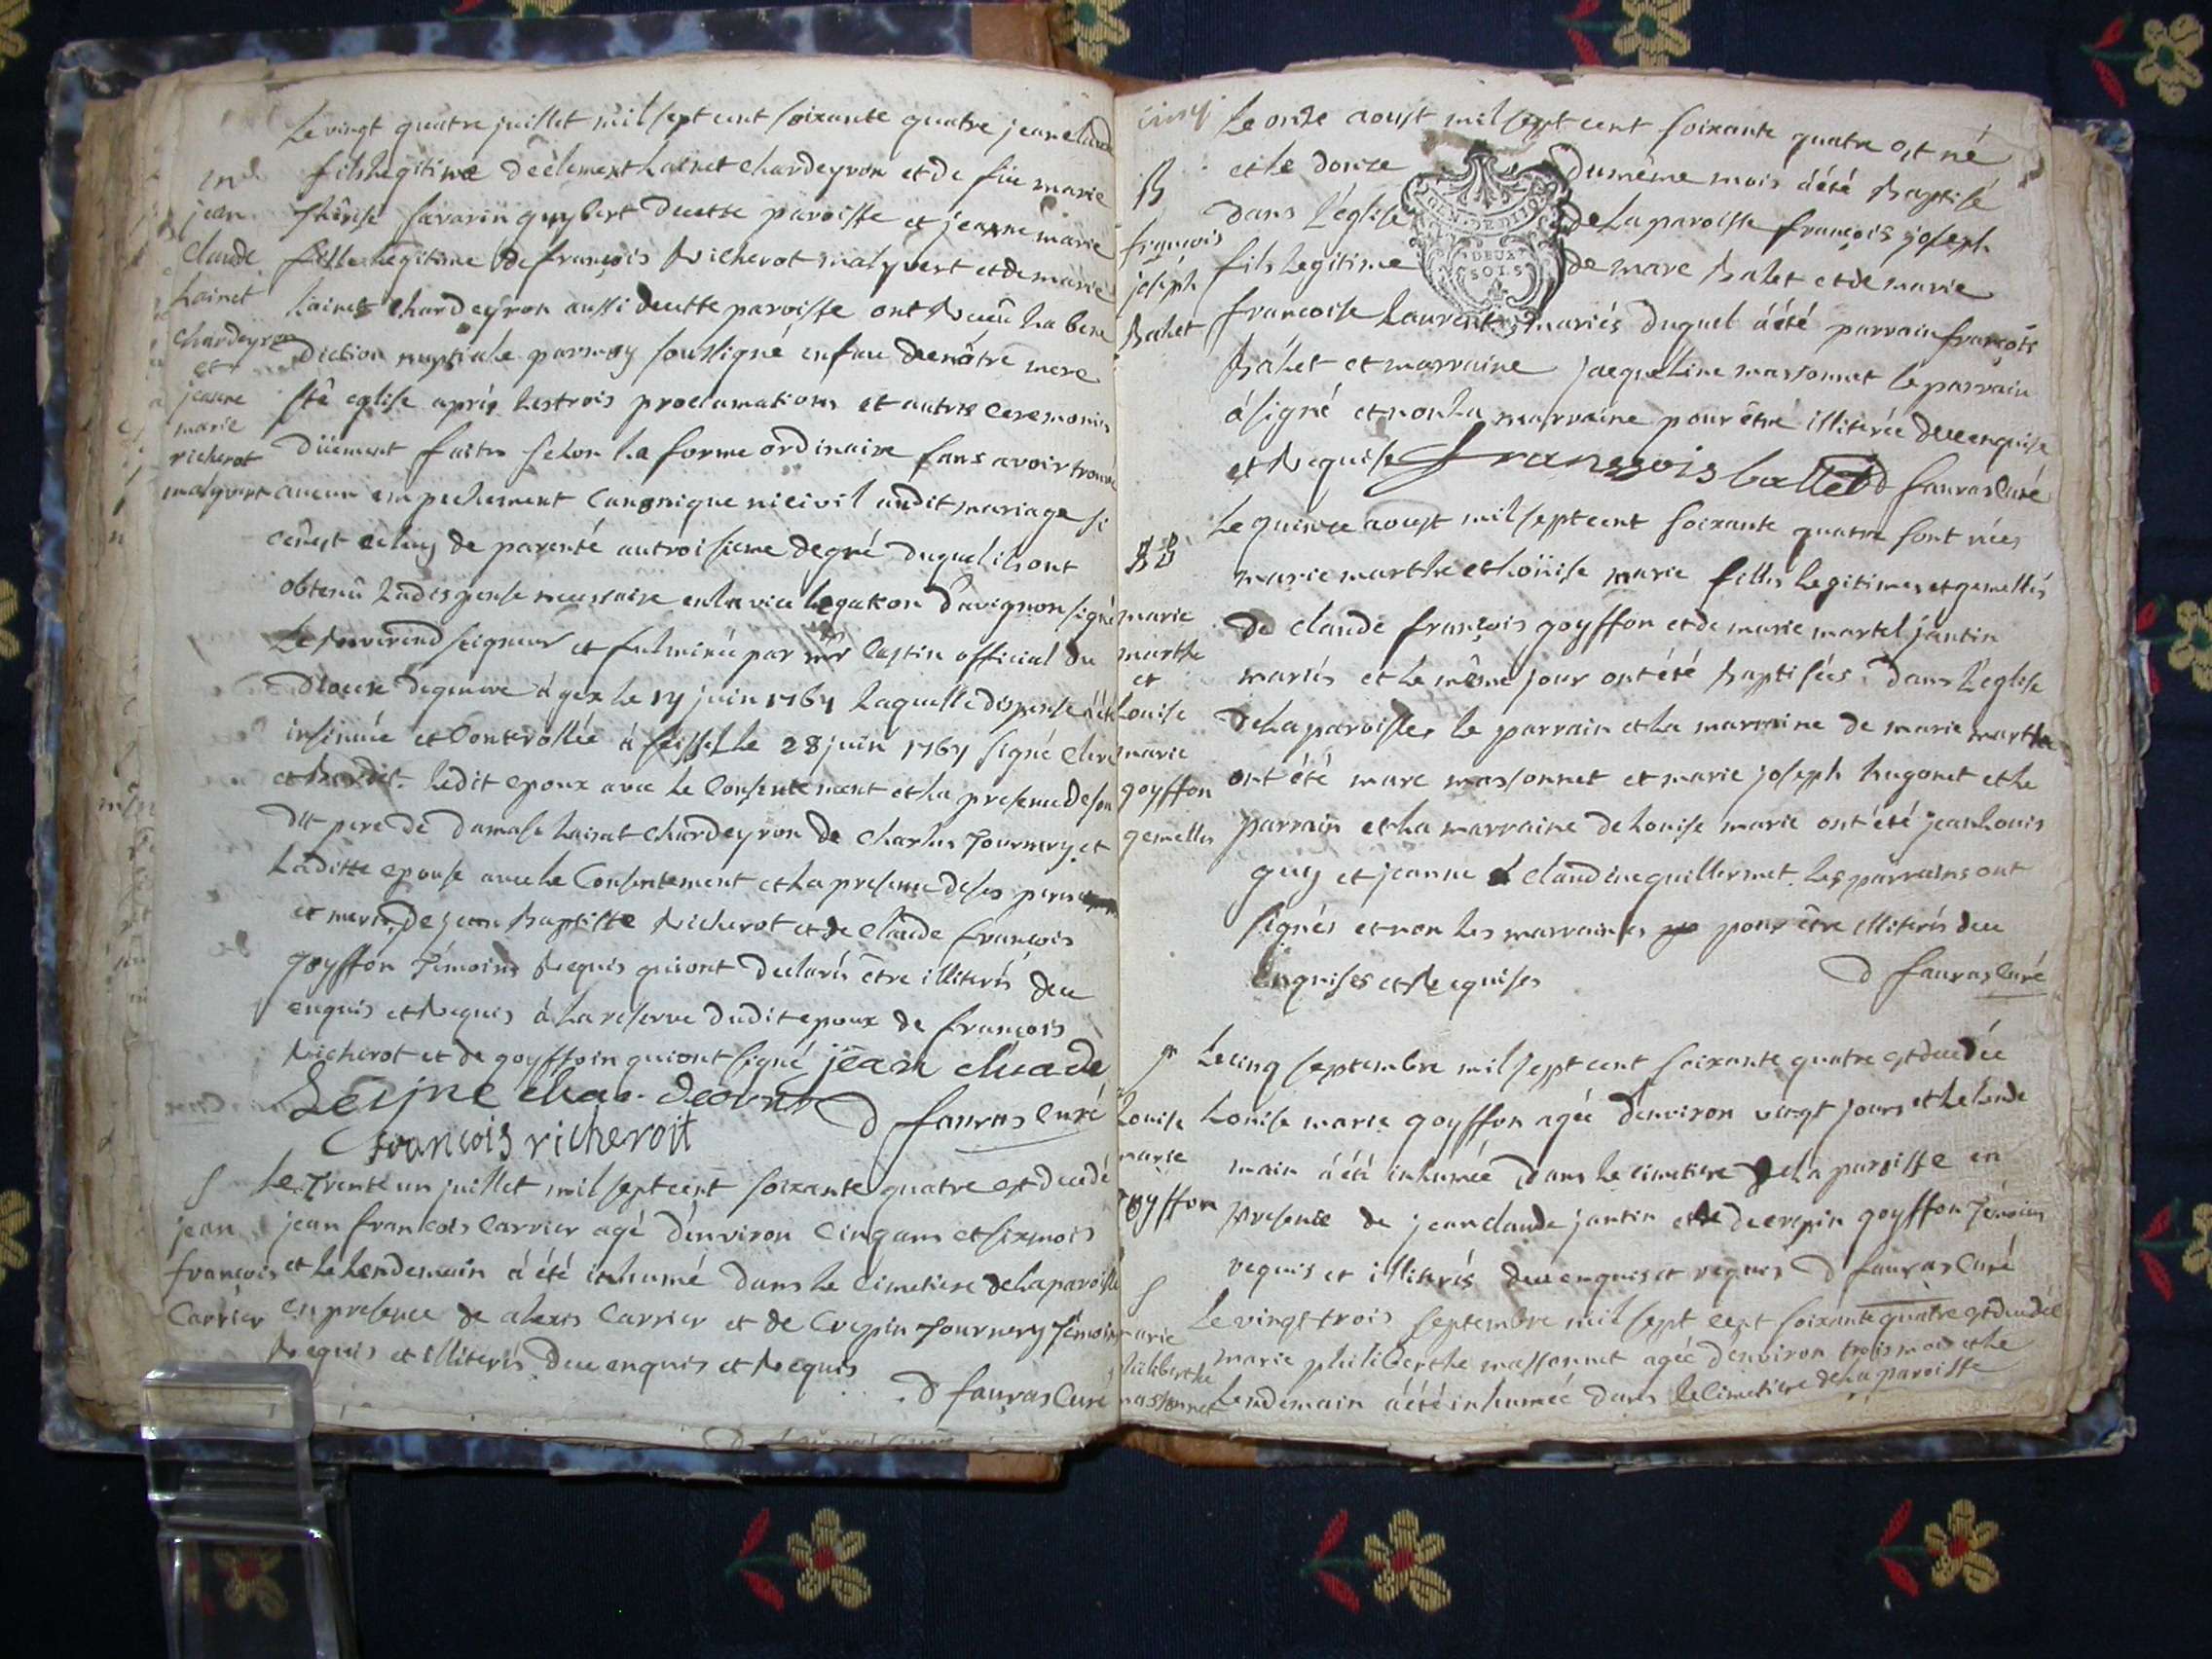 Le vingt quatre juillet mil sept cent soixante quatre jean claude
fils legitime de clement hainet chardeyron et de feüe marie
Therese favarin guybert de cette paroisse et jeanne marie
fille legitime de françois Richerot malyvert et de marie
hainet chardeyron aussi de cette paroisse ont Receu la bene
diction nuptiale par moy soussigné en face de nôtre mere
ste eglise aprés les trois proclamations et autres ceremonies
düement faites selon la forme ordinaire sans avoir trouvé
aucun empechement canonique ni civil audit mariage si
ce n'est celuy de parenté au troisieme degré duquel ils ont
obtenû la dispense necessaire en la vice legation d'avignon signé
Le Reverend seigneur et fulminée par mr castin official du
diocese de geneve à gex le 14 juin 1764 laquelle dispense a été
insinuée et controllée à seissel le 28 juin 1764 signé
ledit epoux avec le consentement et la presence de son
dit pere de damase hainet chardeyron de charles Tournery et
la ditte epouse avec le consentement et la presence de ses pere
et mere, de jean Baptiste Richerot et de claude françois
goyffon Témoins Requis qui ont declarés être illiterés de ce
enquis et Requis à la reserve dudit epoux de françois
Richerot et de goyffoin qui ont signé jean cluade
D fauras Curé
françois richeroit
jean
claude
hainet
chardeyron
et
jeanne
marie
richerot
malyvert
Le Trente un juillet mil sept cent soixante quatre est decedé
jean françois Carrier agé d'environ cinq ans et six mois
et le lendemain à été inhumé dans le cimetiere de la paroisse
en presence de alexis Carrier et de Crepin Tournery Témoins
Requis et illiterés de ce enquis et Requis
D fauras Curé
S
jean
françois
Carrier
Le onze aoust mil sept cent soixante quatre est né
et le douze du même mois à été Baptisé
dans l'église de la paroisse françois joseph
fils legitime de marc Balet et de marie
françoise Laurent mariés duquel à été parrain françois
Balet et marraine jacqueline massonnet le parrain
à signé et non la marraine pour être illiterée de ce enquise
et Requise franssois ballet D fauras Curé
GEN. DE DIJON
DEUX
SOLS
B
françois
joseph
Balet
Le quinze aoust mil sept cent soixante quatre sont nées
marie marthe et Loüise marie filles legitimes et gemelles
de claude françois goyffon et de marie martel jantin
mariés et le même jour ont été Baptisées dans l'église
de la paroisse, le parrain et la marraine de marie marthe
ont été marc massonnet et marie joseph hugonet et le
parrain et la marraine de Louise marie ont été jean Louis
guy et jeanne claudine guillermet les parrains ont
signés et non les marraines pour être illiterés de ce
Enquises et Requises D fauras Curé
BB
marie
marthe
et
Louise
marie
goyffon
gemelles
Le cinq septembre mil sept cent soixante quatre est decedée
Louise marie goyffon agée d'environ vingt jours et le lende
main à été inhumée dans le cimetiere de la paroisse en
presence de jean claude jantin et de crepin goyffon Témoins
requis et illiterés de ce enquis et requis D fauras Curé
Louise
marie
goyffon
Le vingt trois septembre mil sept cent soixante quatre est decedée
marie philiberthe massonnet agée d'environ trois mois et le
Lendemain à été inhumée dans le cimetiere de la paroisse
S
marie
philiberthe
massonnet